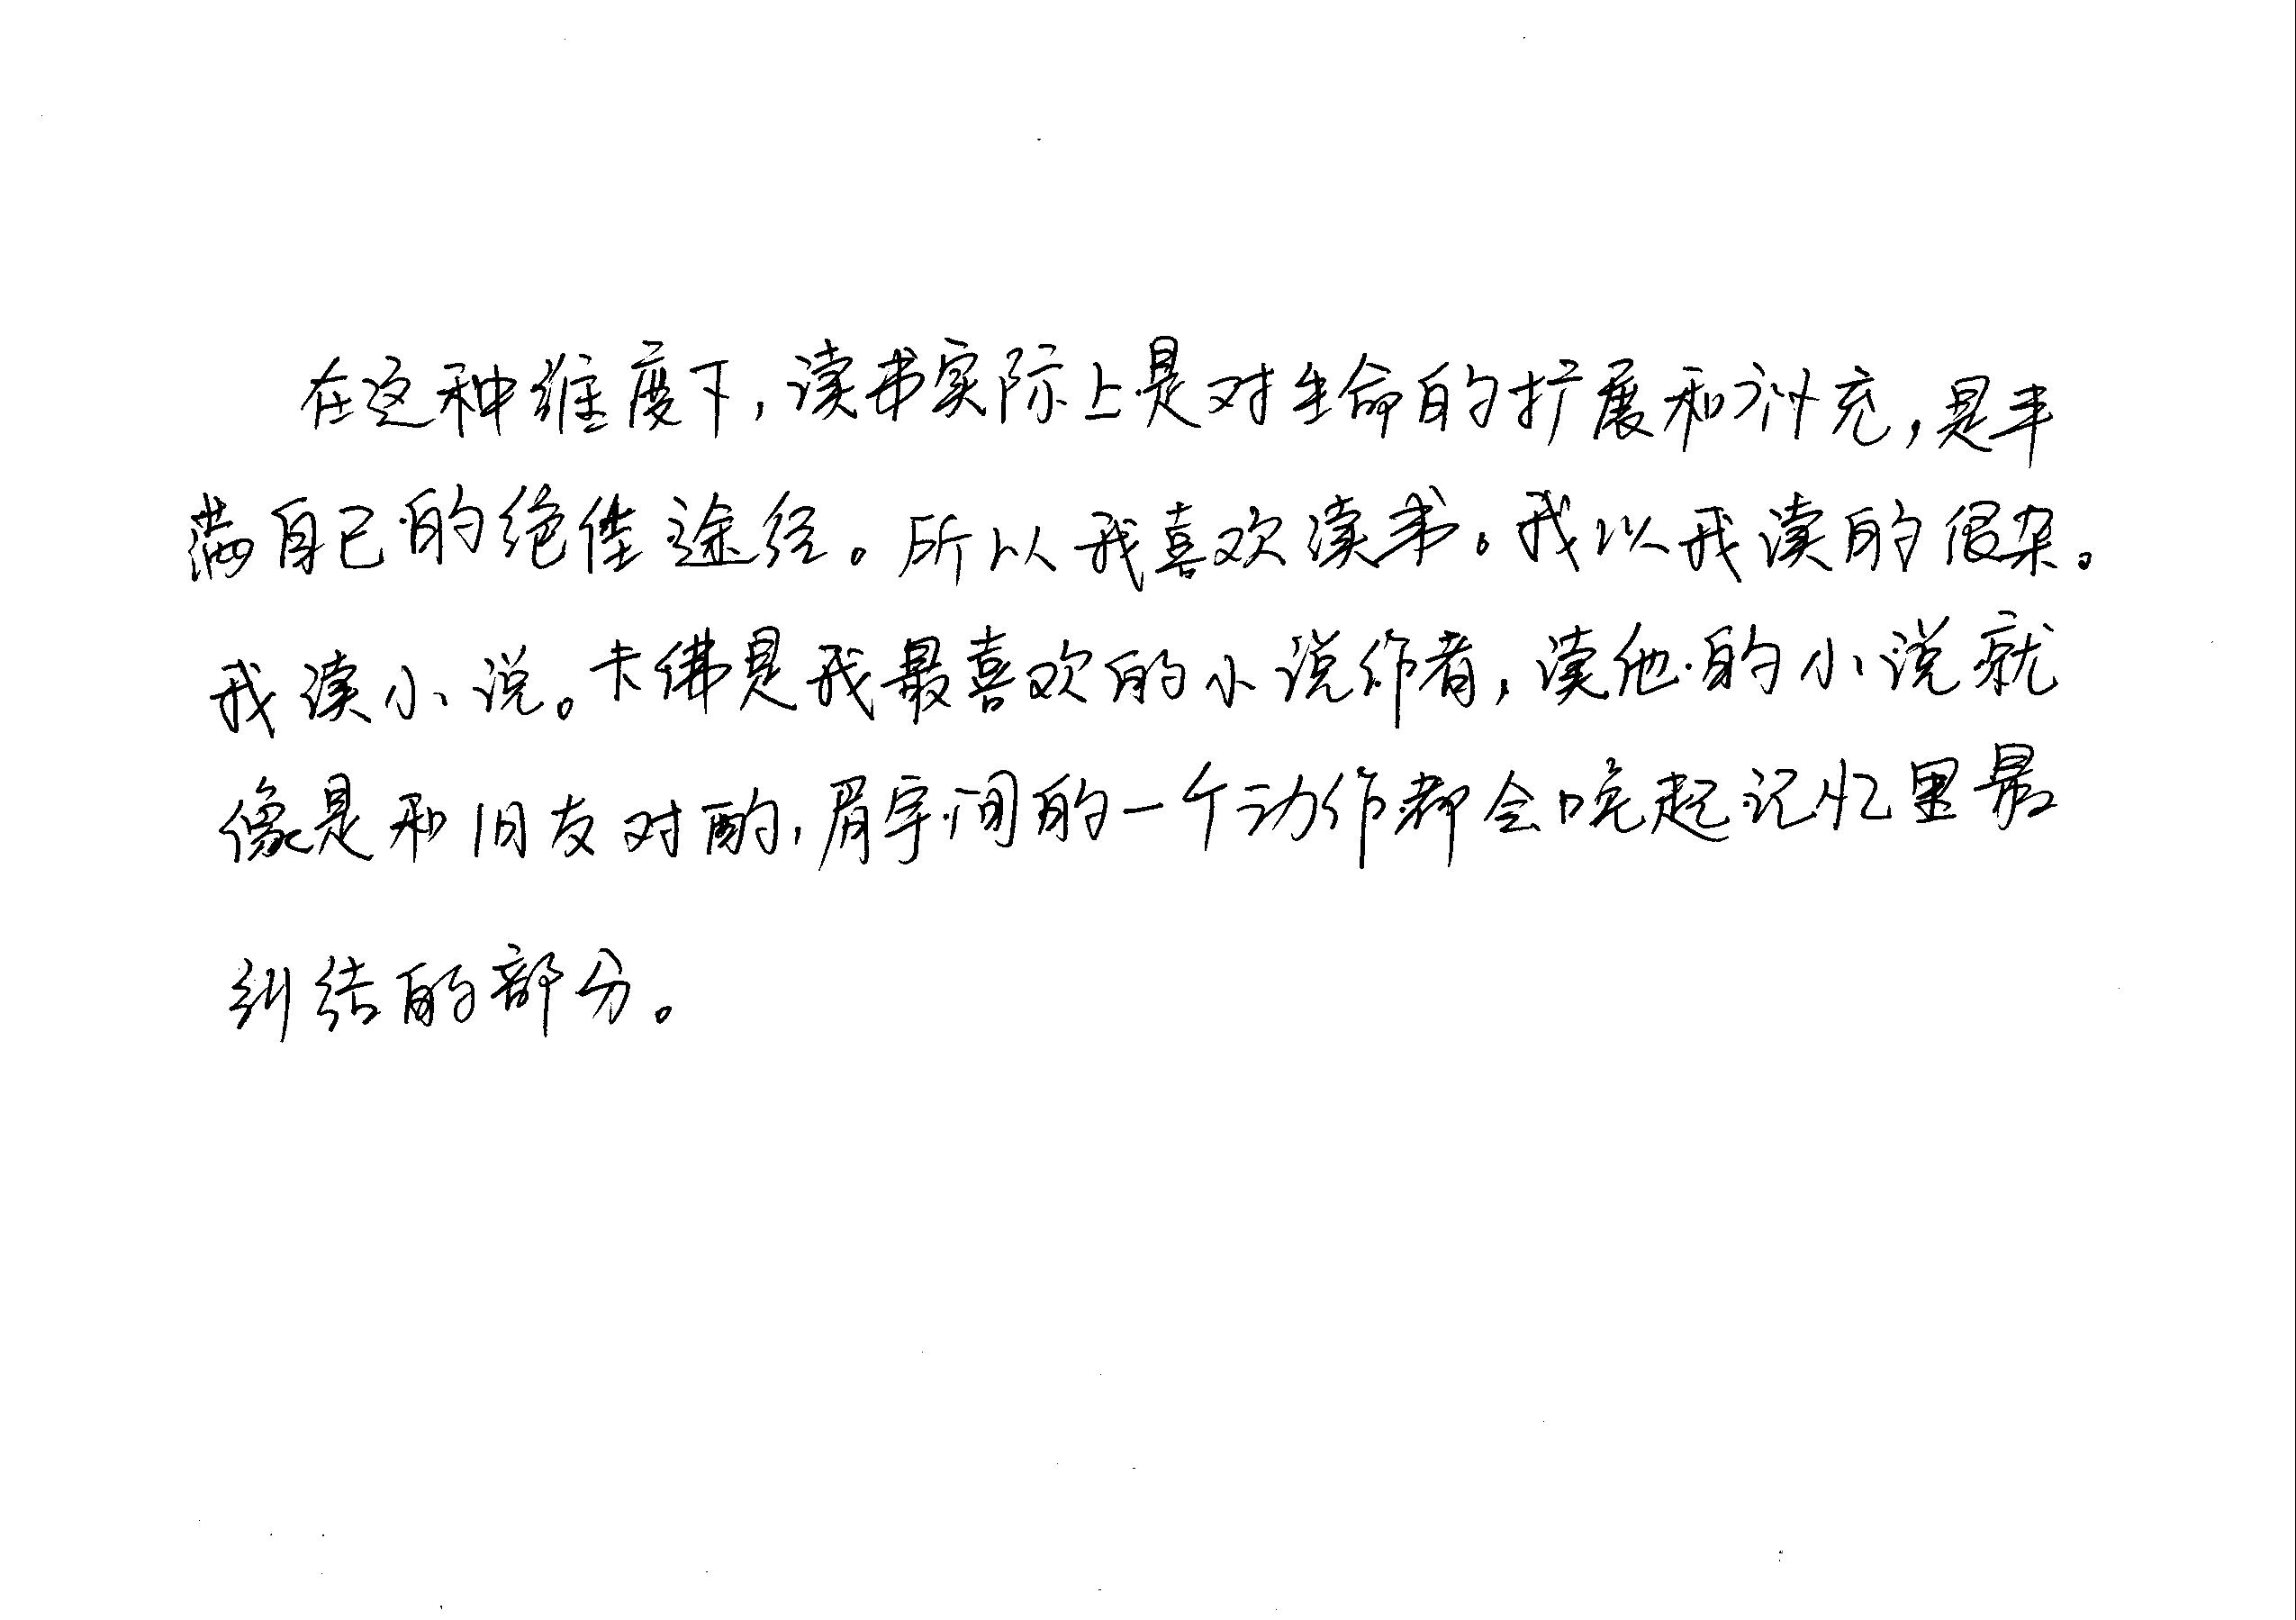 在这种维度下，读书实际上是对生命的扩展和补充，是丰
满自己的绝佳途径。所以我喜欢读书。我以我读的很杂。
我读小说。卡佛是我最喜欢的小说作者，读他的小说就
像是和旧友对酌，眉宇间的一个动作都会唤起记忆里最
纠结的部分。